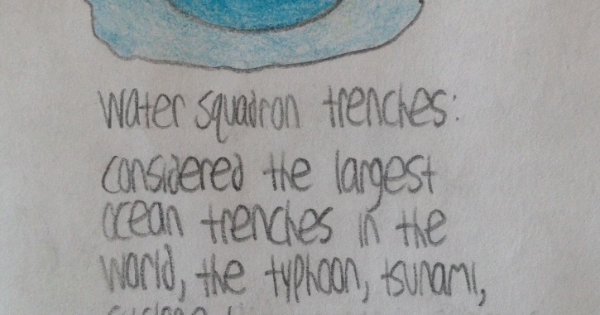 water squadron trenches:
considered the largest
ocean trenches in the
world, the typhoon, tsunami,